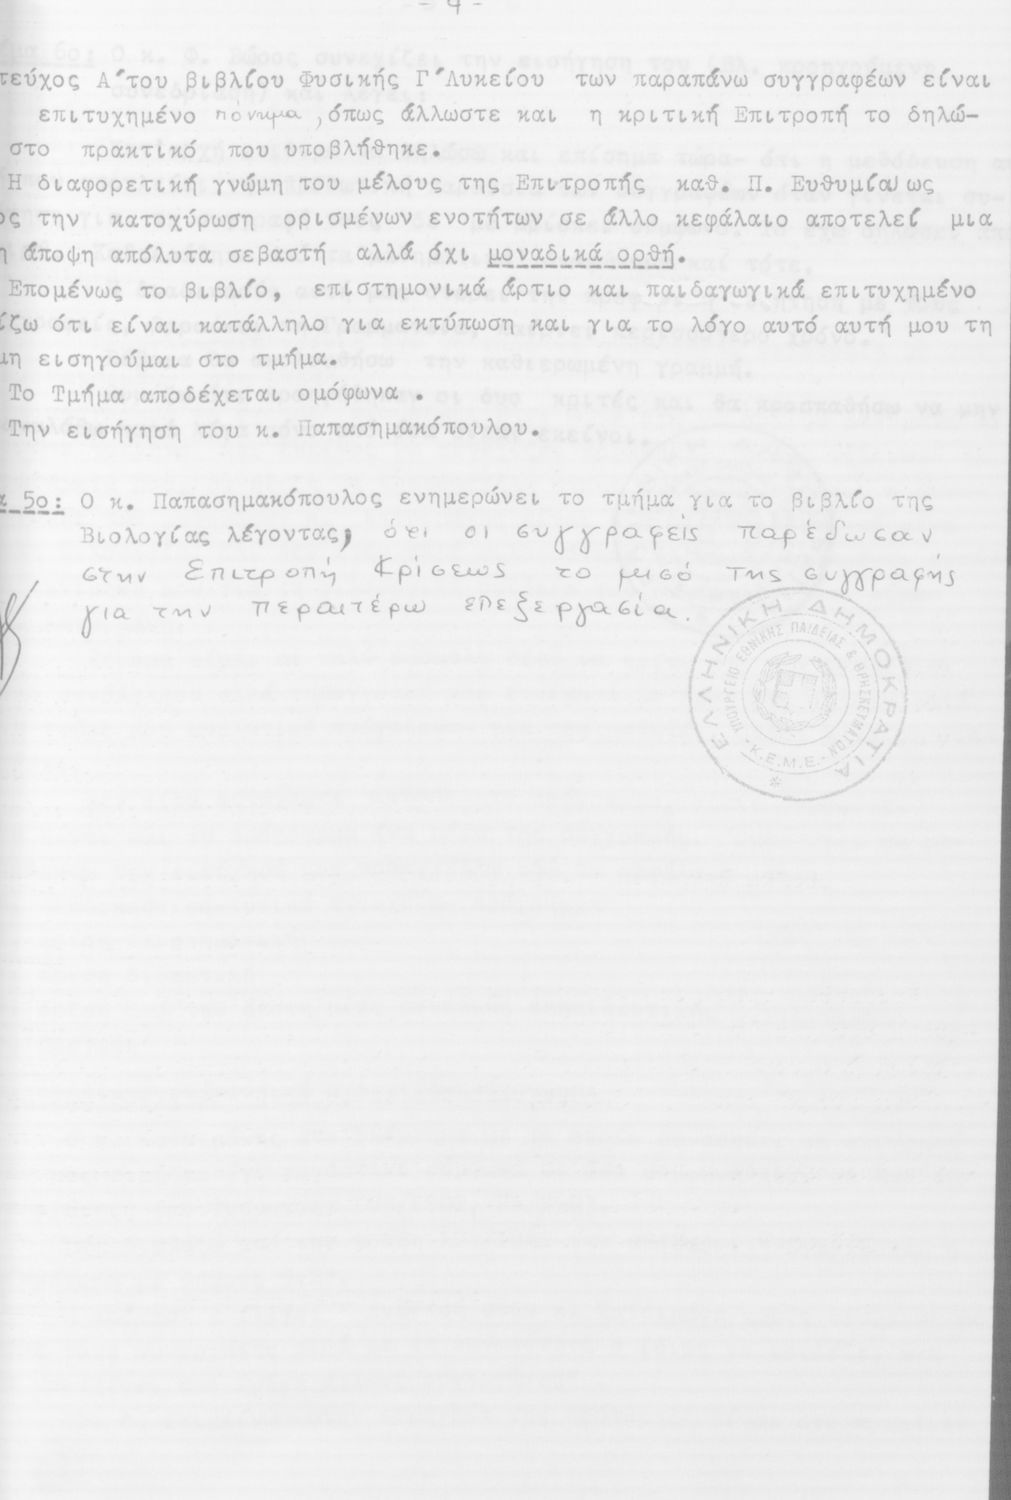 - 9 -
τεύχος Α΄του βιβλίου Φυσικής Γ΄Λυκείου των παραπάνω συγγραφέων είναι
επιτυχημένο πόνημα, όπως άλλωστε και η κριτική Επιτροπή το δηλώ-
στο πρακτικό που υποβλήθηκε.
Η διαφορετική γνώμη του μέλους της Επιτροπής καθ. Π. Ευθυμίου ως
ος την κατοχύρωση ορισμένων ενοτήτων σε άλλο κεφάλαιο αποτελεί μια
η άποψη απόλυτα σεβαστή αλλά όχι μοναδικά ορθή.
Επομένως το βιβλίο, επιστημονικά άρτιο και παιδαγωγικά επιτυχημένο
ίζω ότι είναι κατάλληλο για εκτύπωση και για το λόγο αυτό αυτή μου τη
μη εισηγούμαι στο τμήμα.
Το Τμήμα αποδέχεται ομόφωνα .
Την εισήγηση του κ. Παπασημακόπουλου.
α 5ο: Ο κ. Παπασημακόπουλος ενημερώνει το τμήμα για το βιβλίο της
Βιολογίας λέγοντας, ότι οι συγγραφείς παρέδωσαν
στην Επιτροπή Κρίσεως το μισό της συγγραφής
για την περαιτέρω επεξεργασία.
ΕΛΛΗΝΙΚΗ ΔΗΜΟΚΡΑΤΙΑ
ΥΠΟΥΡΓΕΙΟ ΕΘΝΙΚΗΣ ΠΑΙΔΕΙΑΣ & ΘΡΗΣΚΕΥΜΑΤΩΝ
- Κ.Ε.Μ.Ε. -